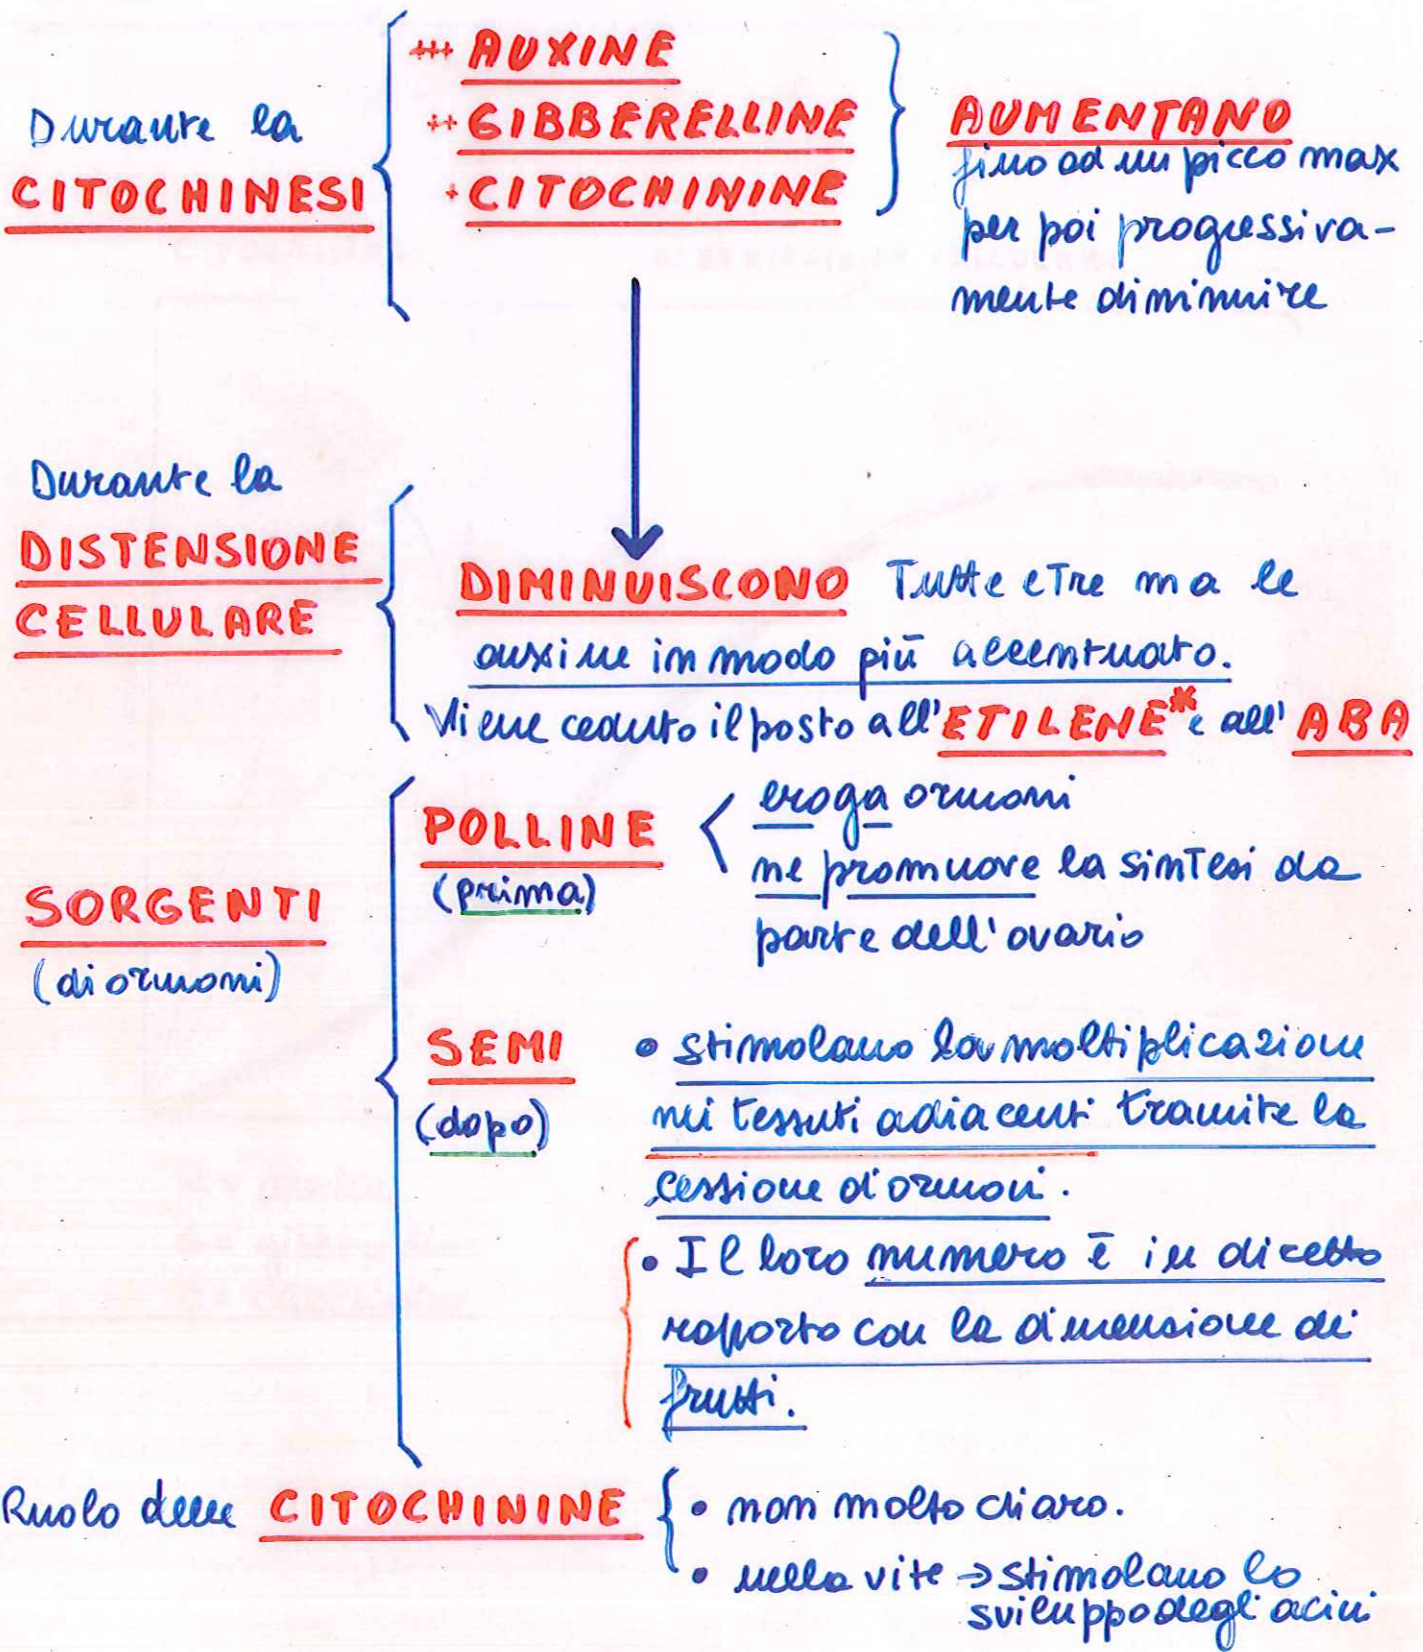 Durante la
CITOCHINESI
+++ AUXINE
++ GIBBERELLINE
+ CITOCHININE
AUMENTANO
fino ad un picco max
per poi progressiva-
mente diminuire
Durante la
DISTENSIONE
CELLULARE
DIMINUISCONO Tutte e Tre ma le
auxine in modo più accentuato.
Viene ceduto il posto all'ETILENE* e all'ABA
SORGENTI
(di ormoni)
POLLINE
(prima)
eroga ormoni
ne promuove la sintesi da
parte dell'ovario
SEMI
(dopo)
• stimolano la moltiplicazione
nei tessuti adiacenti tramite la
cessione d'ormoni.
• Il loro numero è in diretto
rapporto con la dimensione dei
frutti.
Ruolo delle CITOCHININE
• non molto chiaro.
• nella vite → stimolano lo
sviluppo degli acini